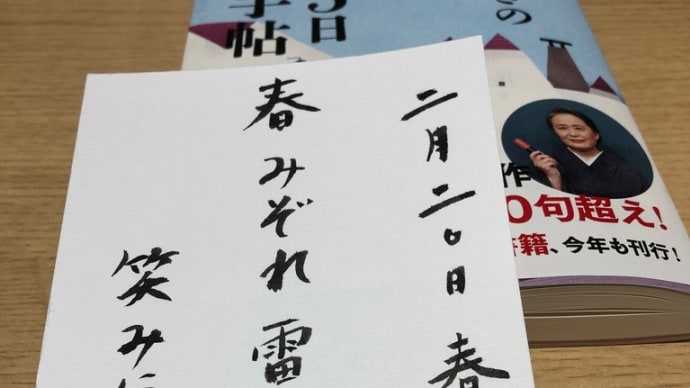 二月二〇日 春
春みぞれ雷
笑みに
の
5日
手帖
作
0句超え!
書籍、今年も刊行!